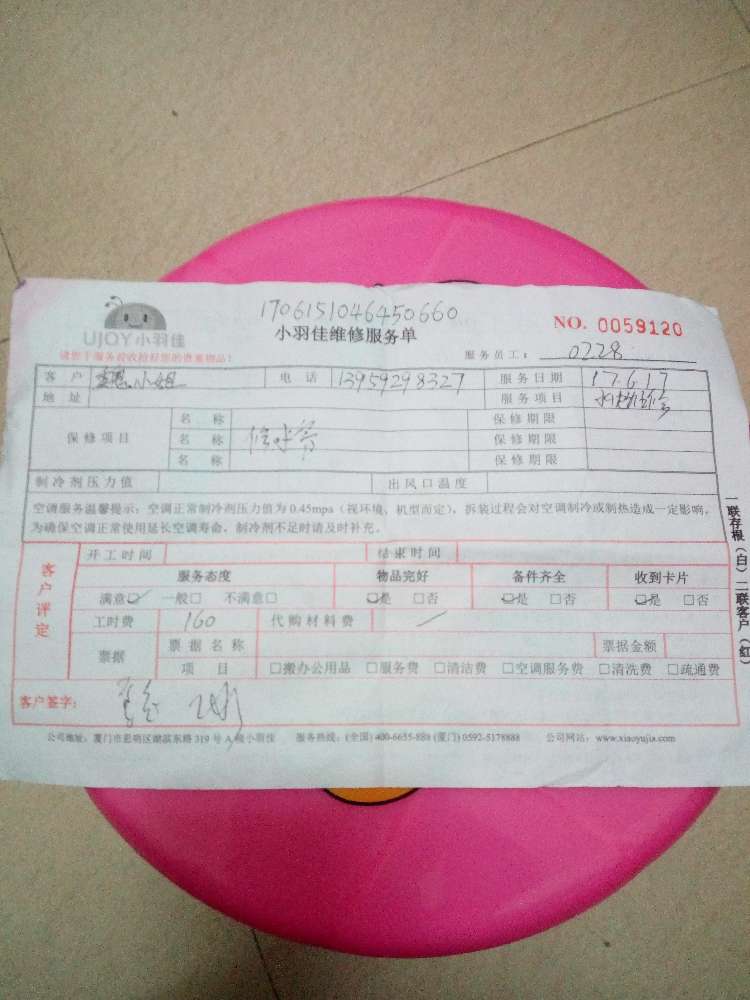 1706151046450660
UJOY小羽佳
小羽佳维修服务单
NO. 0059120
请您于服务前收拾好您的贵重物品!
服务员工: 0228
客户 小姐 电话 13959298327 服务日期 17.6.17
地址 服务项目
保修项目 名称 修水管 保修期限
名称 保修期限
名称 保修期限
制冷剂压力值 出风口温度
空调服务温馨提示:空调正常制冷剂压力值为0.45mpa(视环境、机型而定),拆装过程会对空调制冷或制热造成一定影响,
为确保空调正常使用延长空调寿命,制冷剂不足时请及时补充。
客户评定
开工时间 结束时间
服务态度 物品完好 备件齐全 收到卡片
满意☑ 一般□ 不满意□ ☑是 □否 ☑是 □否 ☑是 □否
工时费 160 代购材料费 /
票据 票据名称 票据金额
项目 □搬办公用品 □服务费 □清洁费 □空调服务费 □清洗费 □疏通费
客户签字:
公司地址:厦门市思明区湖滨东路319号A楼小羽佳 服务热线:(全国)400-6655-888 (厦门)0592-5178888 公司网站:www.xiaoyujia.com
一联存根(白)二联客户(红)